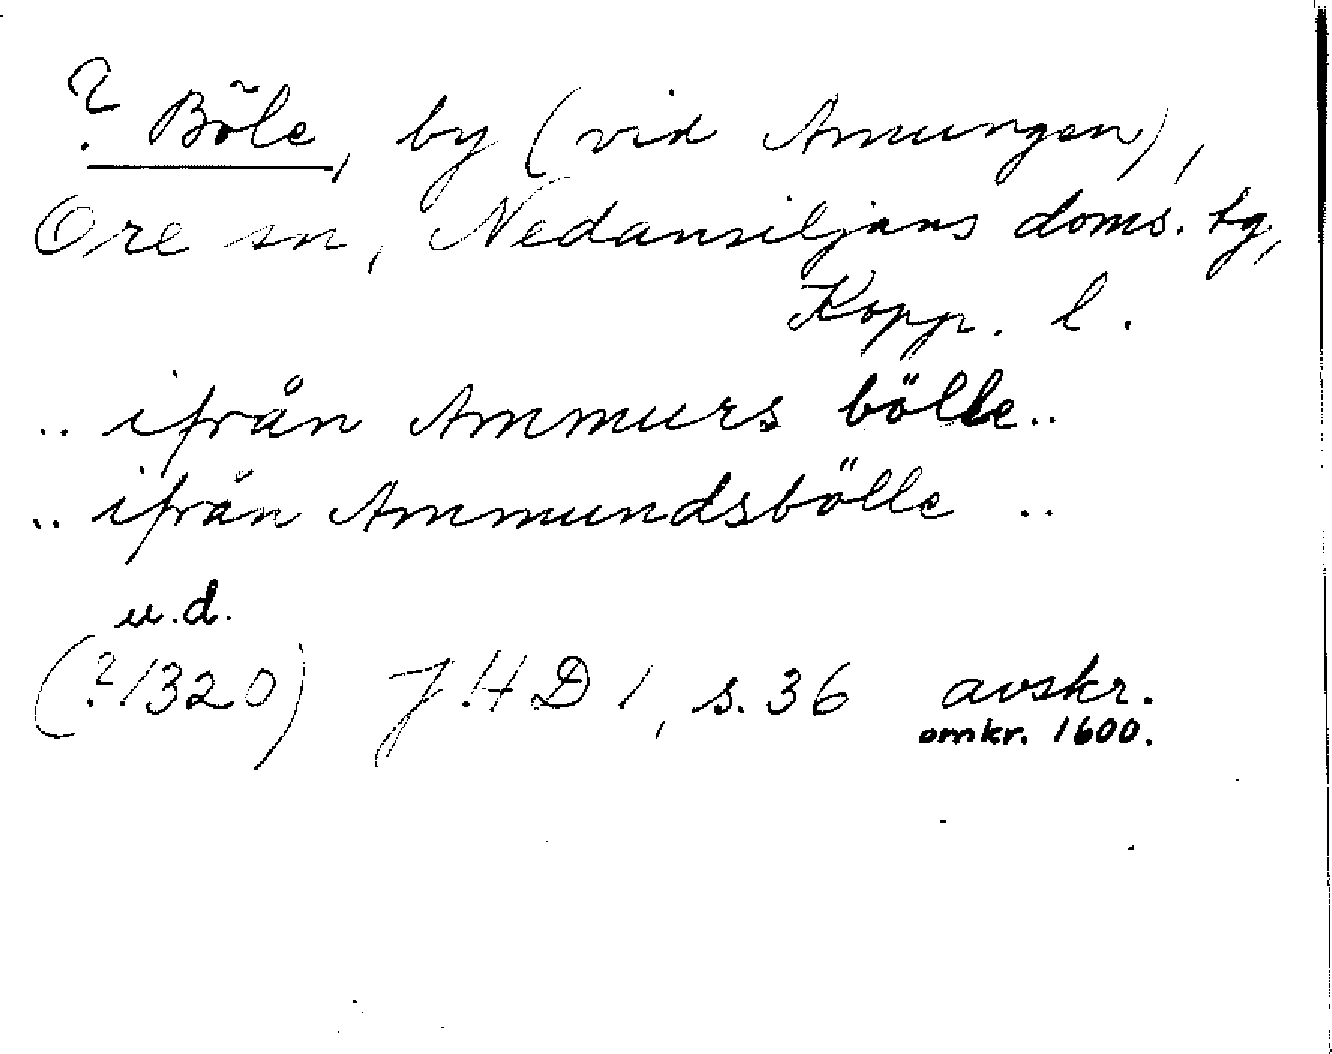 ? Böle, by (vid Amungen),
Ore sn, Nedansiljans doms. tg,
Kopp. l.
.. ifrån Ammurs bölle..
.. ifrån Ammundsbölle ..
u.d.
(?1320) J.H D 1, s. 36 avskr.
omkr. 1600.